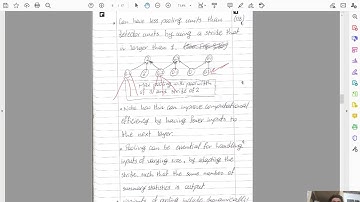 • Can have less pooling units than
detector units by using a stride that
is larger than 1.
Max pooling with pool width
of 3 and stride of 2
• Note how this can improve computational
efficiency by having fewer inputs to
the next layer.
• Pooling can be essential for handling
inputs of varying size, by adapting the
stride such that the same number of
summary statistics is output.
of pooling include